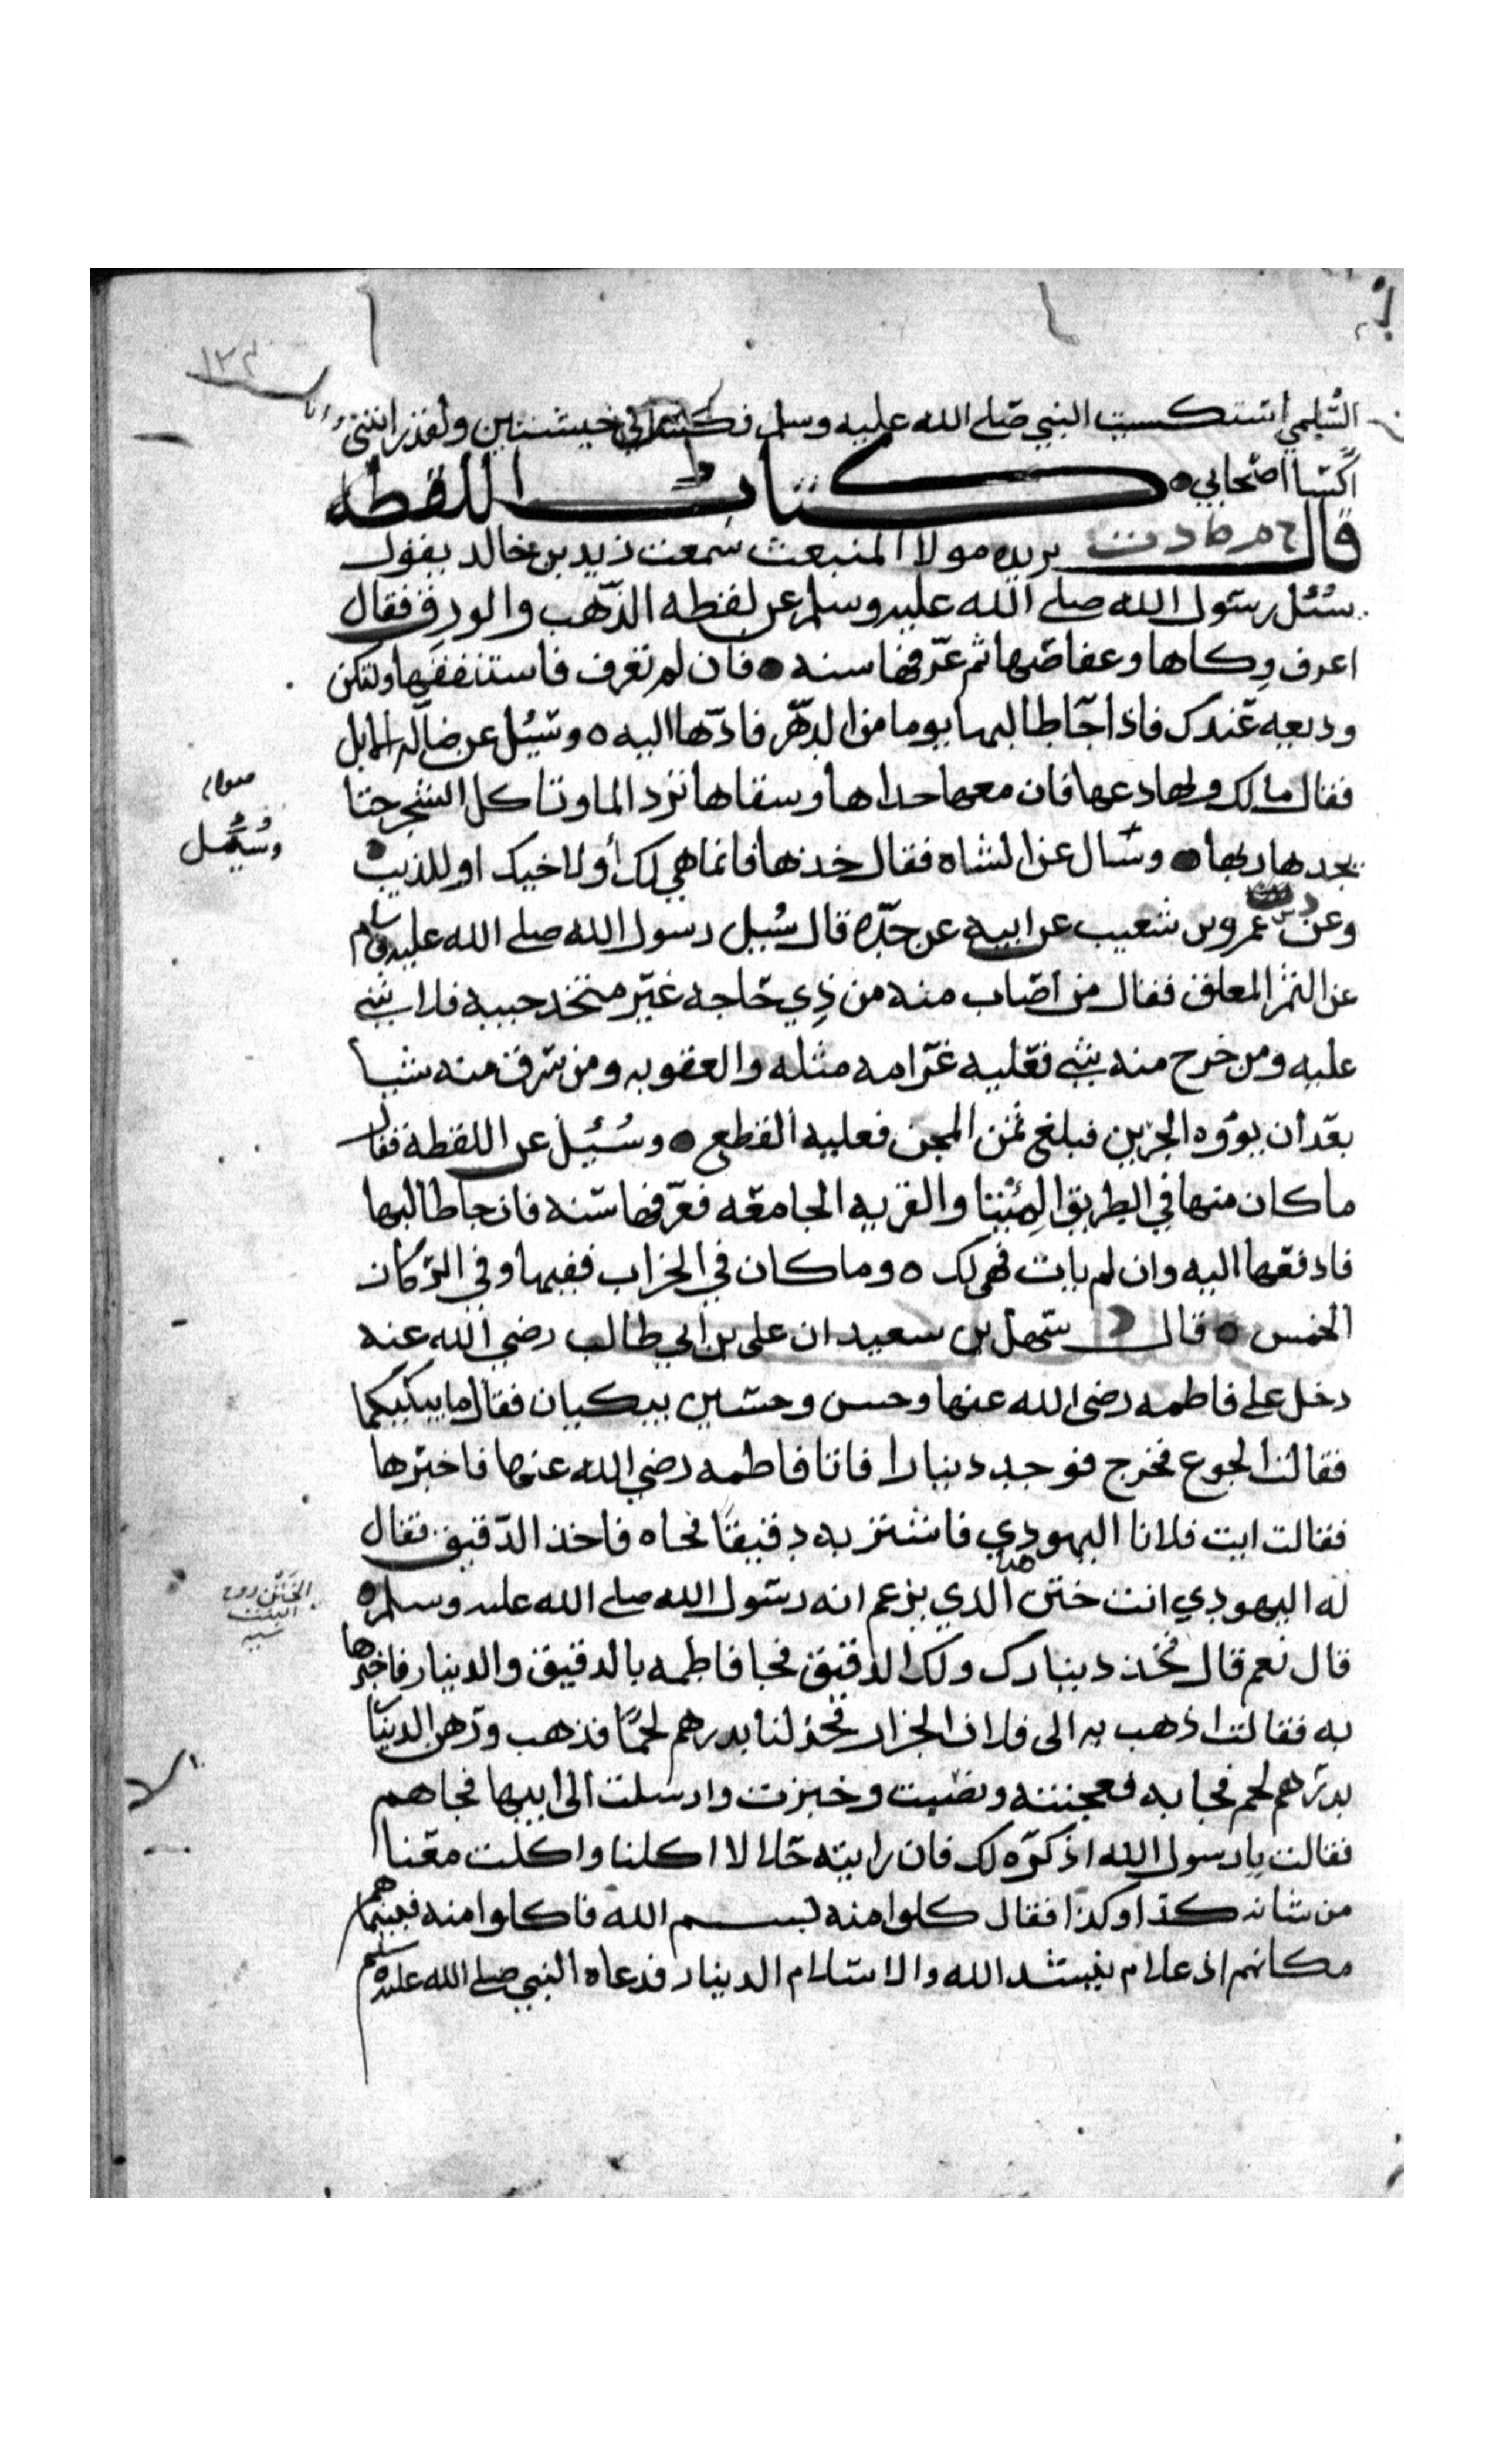 ١٢٣
السُّلمي استكسيت النبي صلى الله عليه وسلم فكساني خيشتين ولقد رايتني وانا
اكسا اصحابي ه كتاب اللقطه
قال خ م ط د ت يزيد مولا المنبعث سمعت زيد بن خالد يقول
سُئل رسول الله صلى الله عليه وسلم عن لقطه الذهب والورق فقال
اعرف وكاها وعفاصها ثم عرّفها سنه ه فان لم تعرف فاستنفقها ولتكن
وديعه عندك فاذا جا طالبها يوما من الدهر فادّها اليه ه وسُيل عن ضاله الابل
فقال مالك ولها دعها فان معها حداها وسقاها ترد الما وتاكل الشجر حتا
يجدها ربها ه وسال عن الشاه فقال خذها فانما هي لك أو لاخيك او للذيب
صوابه
وسُئل
وعن عمرو بن شعيب عن ابيه عن جدّه قال سُيل رسول الله صلى الله عليه وسلم
عن الثمر المعلق فقال من اصاب منه من ذي حاجه غير متخذ خبيه فلا شي
عليه ومن خرج منه بشي فعليه غرامه مثله والعقوبه ومن سرق منه شيا
بعد ان يؤوه الجرين فبلغ ثمن المجن فعليه القطع ه وسُئيل عن اللقطة فقال
ما كان منها في الطريق الميتا والقريه الجامعه فعرّفها سنه فان جا طالبها
فادفعها اليه وان لم يات فهي لك ه وما كان في الخراب ففيها وفي الركاز
الخمس ه قال د سهل بن سعيد ان على بن ابي طالب رضي الله عنه
دخل على فاطمه رضى الله عنها وحسن وحسين يبكيان فقال ما يبكيكما
فقالت الجوع فخرج فوجد دينارا فاتا فاطمه رضي الله عنها فاخبرها
فقالت ايت فلانا اليهودي فاشتر به دقيقًا فجاه فاخذ الدقيق فقال
له اليهودي انت ختن هذا الذي يزعم انه رسول الله صلى الله عليه وسلم ه
الختن زوج
البنت
قال نعم قال فخذ دينارك ولك الدقيق فجا فاطمه بالدقيق والدينار فاخبرها
به فقالت اذهب به الى فلان الجزار فخذ لنا بدرهم لحمًا فذهب ورهن الدينار
بدرهم لحم فجا به فعجنته ونصبت وخبزت وارسلت الى ابيها فجاهم
فقالت يا رسول الله اذكره لك فان رايته حلالا اكلنا واكلت معنا
من شانه كذا وكذا فقال كلوا منه بسم الله فاكلوا منه فبينما هم
مكانهم اذ غلام ينشد الله والاسلام الدينار فدعاه النبي صلى الله عليه وسلم